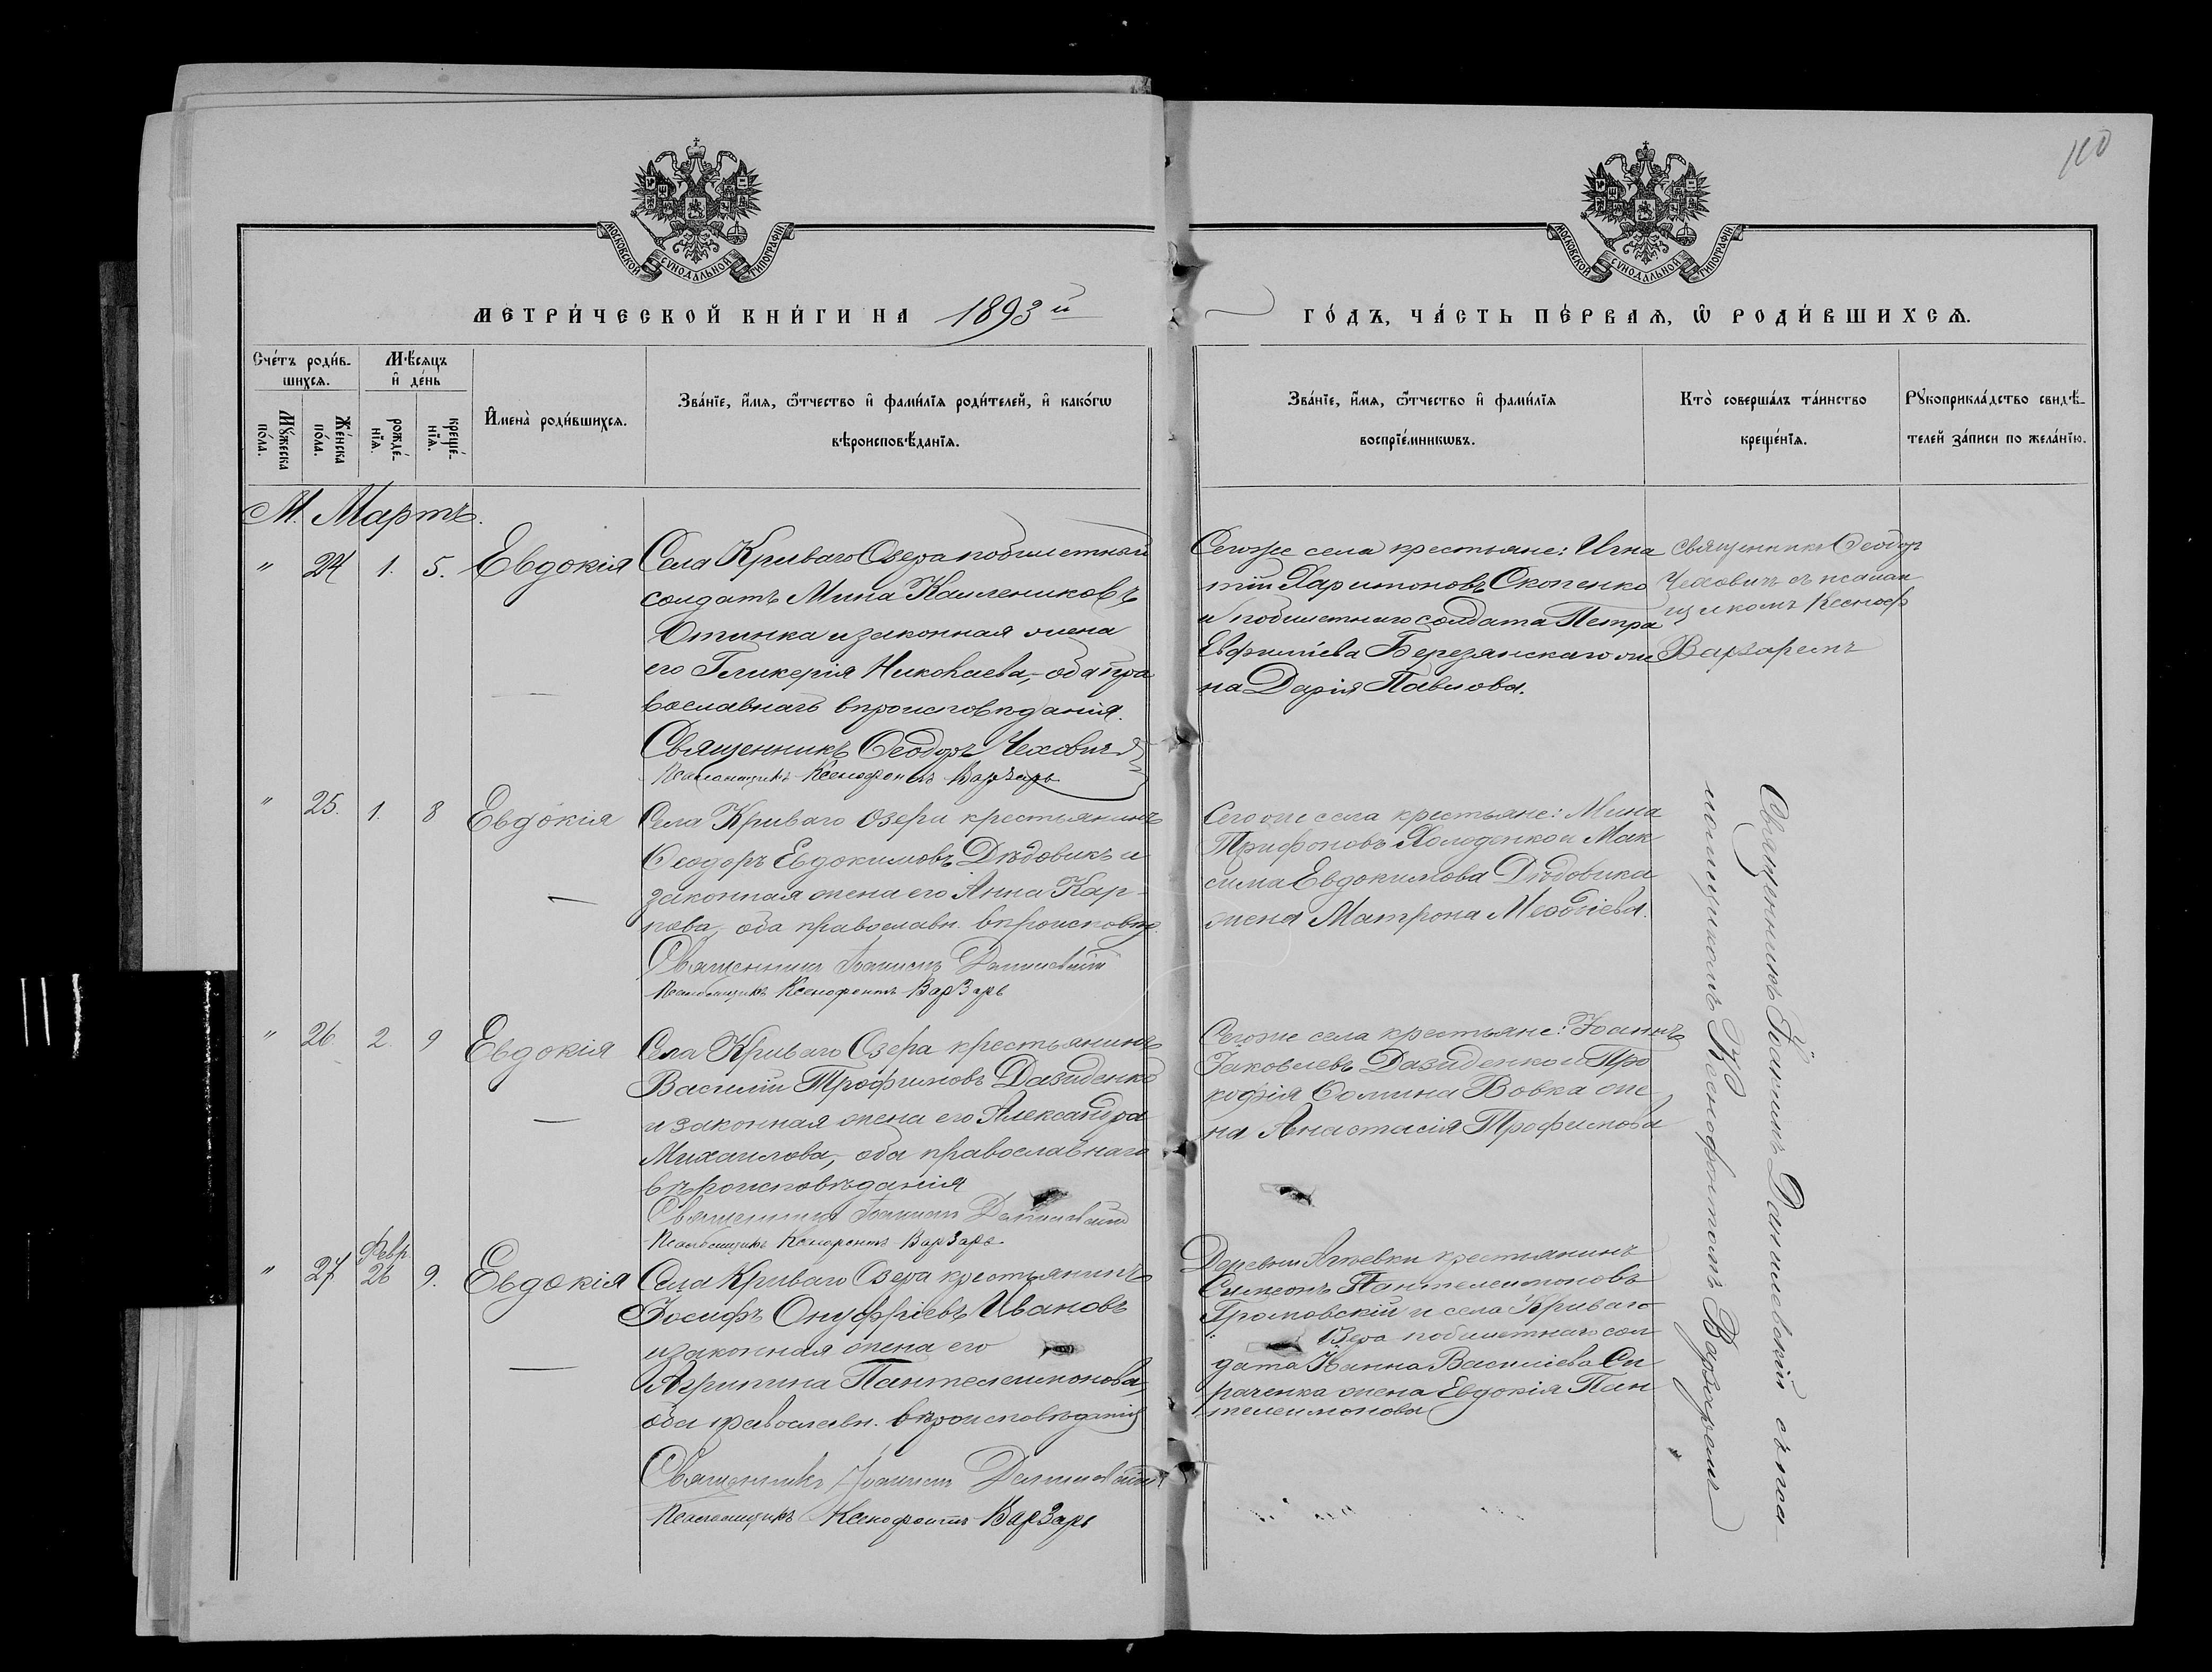 110
МОСКОВСКОЙ СѴНОДАЛЬНОЙ ТИПОГРАФІИ
МОСКОВСКОЙ СѴНОДАЛЬНОЙ ТИПОГРАФІИ
МЕТРИ́ЧЕСКОЙ КНИ́ГИ НА 1893 й
ГО́ДЪ, ЧА́СТЬ ПЕ́РВАѦ, Ѡ РОДИ́ВШИХСѦ.
Сче́тъ роди́в-
шихсѧ.
Мѣ́сѧцъ
и҆ де́нь
Мꙋ́жеска
по́ла.
Же́нска
по́ла.
рожде́-
нїѧ.
креще́-
нїѧ.
И҆мена̀ роди́вшихсѧ.
Зва́нїе, и҆́мѧ, ѻ҆́тчество и҆ фами́лїѧ роди́телей, и҆ како́гѡ
вѣроисповѣ́данїѧ.
Зва́нїе, и҆́мѧ, ѻ҆́тчество и҆ фами́лїѧ
воспрїе́мникѡвъ.
Кто̀ соверша́лъ та́инство
креще́нїѧ.
Рꙋкоприкла́дство свидѣ́-
телей за́писи по жела́нїю.
М. Мартъ.
" 24 1. 5. Евдокія
Села Криваго Озера побилетный
солдатъ Мина
и законная жена
его Гликерія Николаева, оба пра
вославнаго вѣроисповѣданія.
Священникъ Ѳеодоръ Чеховичъ
Псаломщикъ Ксенофонтъ Варзарь
Сегоже села крестьяне: Игна
тій Харитоновъ Скопенко
и побилетнаго солдата Петра
Евфиміева Березянскаго же
на Дарія Павлова.
Священникъ Ѳеодор
Чеховичъ съ псалом
щикомъ Ксеноф
Варзаремъ
" 25. 1. 8 Евдокія
Села Криваго Озера крестьянинъ
Ѳеодоръ Евдокимовъ Дѣдовикъ и
законная жена его Анна Кар-
пова, оба православн. вѣроисповѣд.
Священникъ Іоаннъ Данилевскій
Псаломщикъ Ксенофонтъ Варзарь
Сегоже села крестьяне: Мина
Трифоновъ Холоденко и Мак
сима Евдокимова Дѣдовика
жена Матрона Меѳодіева.
Священникъ Іоаннъ Данилевскій съ пса-
ломщикомъ Ксенофонтомъ Варзаремъ
" 26. 2. 9 Евдокія
Села Криваго Озера крестьянинъ
Василій Трофимовъ Давиденко
и законная жена его Александра
Михаилова, оба православнаго
вѣроисповѣданія
Священникъ Іоаннъ Данилевскій
Псаломщикъ Ксенофонтъ Варзарь
Сегоже села крестьяне: Іоаннъ
Іаковлевъ Давиденко и Про
кофія Ѳомина Вовка же
на Анастасія Трофимова
" 27 Февр. 26 9. Евдокія
Села Криваго Озера крестьянинъ
Іосифъ Онуфріевъ Ивановъ
и законная жена его
Агрипина Пантелеимонова,
оба православн. вѣроисповѣданія
Священникъ Іоаннъ Данилевскій
Псаломщикъ Ксенофонтъ Варзарь
Деревни крестьянинъ
Симеонъ Пантелеимоновъ
Громовскій и села Криваго
Озера побилетнаго сол
дата Іоанна Василіева Си
раченка жена Евдокія Пан
телеимонова